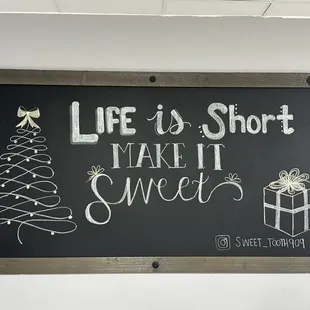 Life is Short
MAKE IT
Sweet
SWEET_TOOTH909